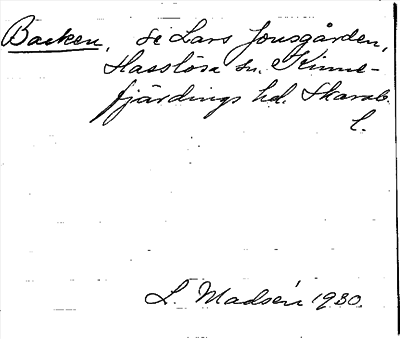 Backen, se Lars Jonsgården,
Hasslösa sn. Kinne-
fjärdings hd. Skarab.
l.
L. Madsén 1930.